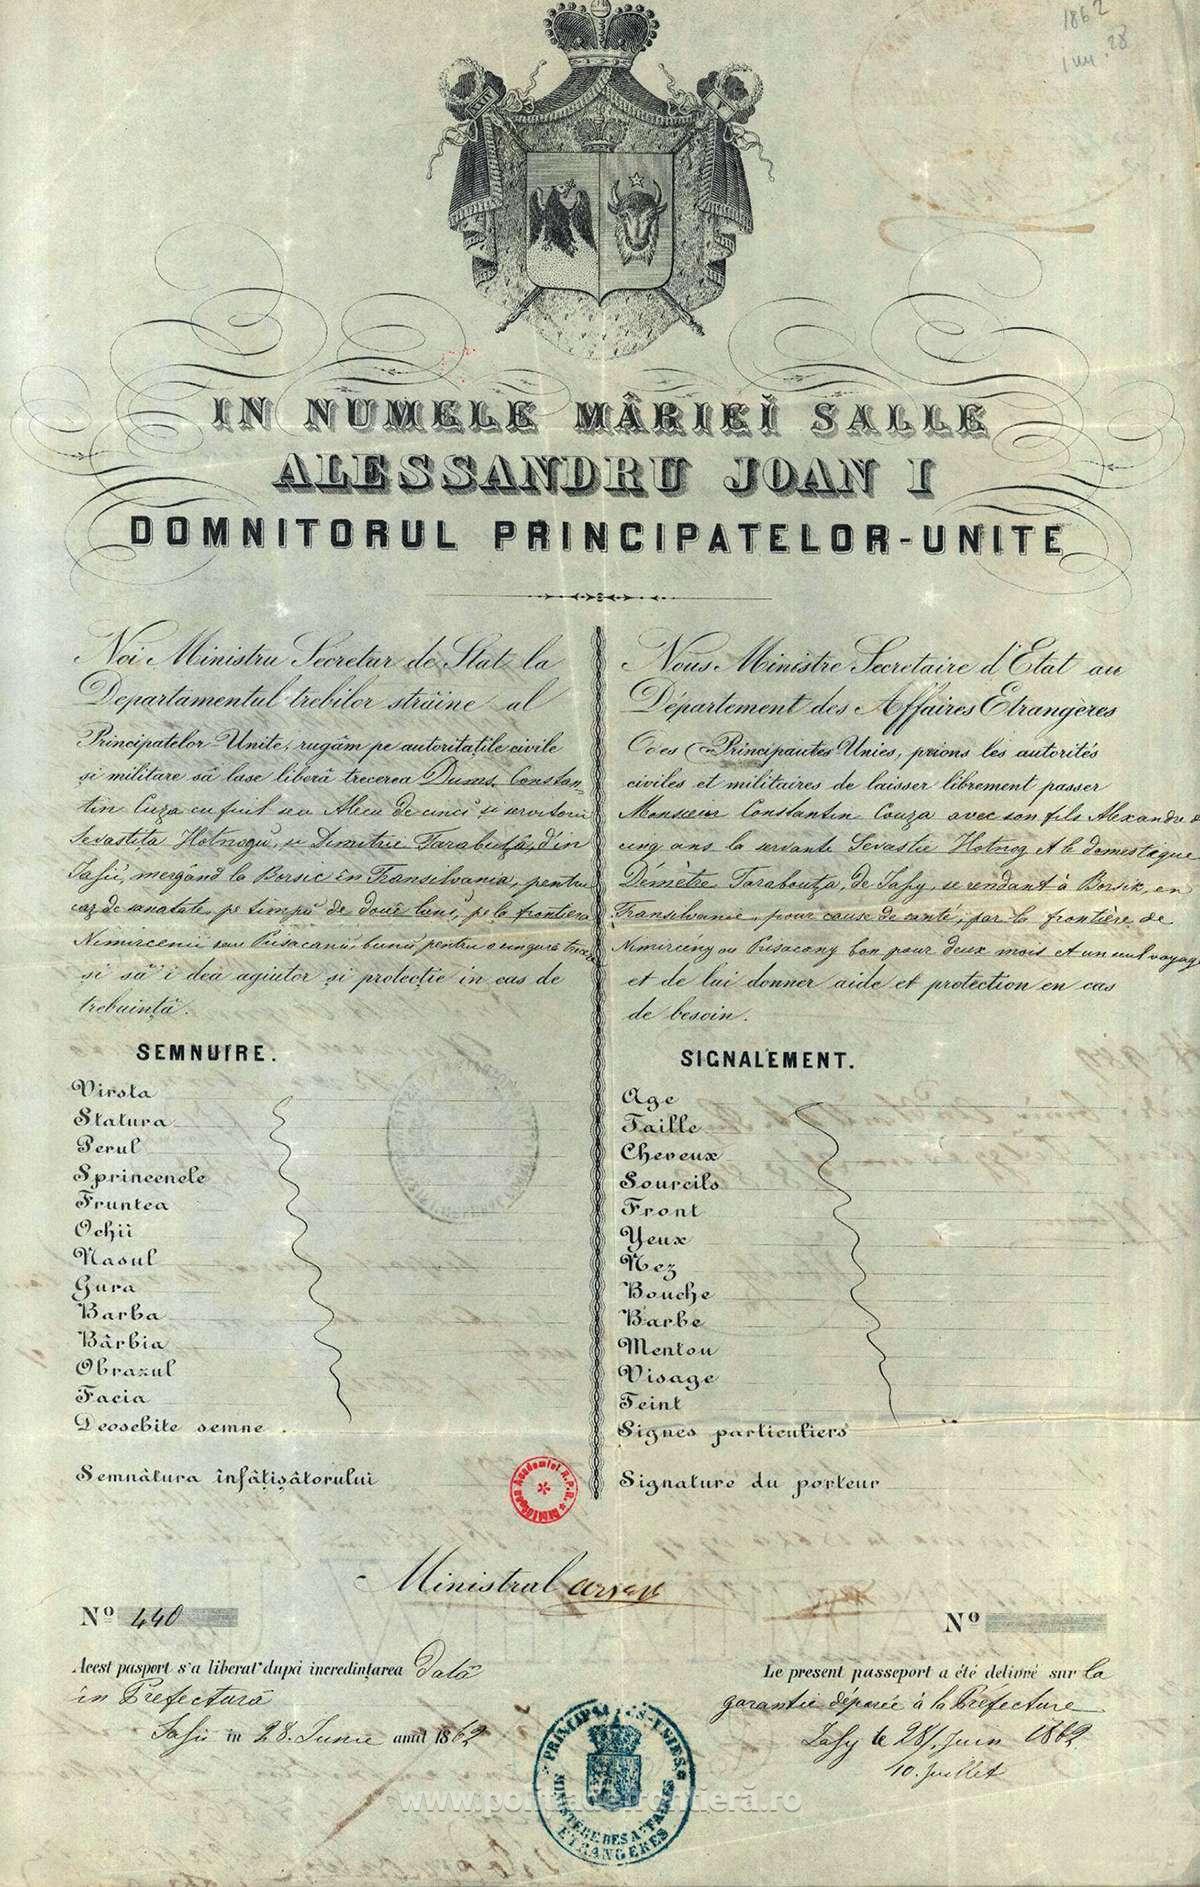 1862
28
IN NUMELE MÂRIEĬ SALLE
ALESSANDRU JOAN I
DOMNITORUL PRINCIPATELOR-UNITE
Noi Ministru Secretar de Stat la
Departamentul trebilor strâine al
Principatelor-Unite, rugâm pe autoritațile civile
și militare sâ lase liberâ trecerea Dums. Constan-
tin Cuza cu fiul seu Alecu de cinci și servitorii
Sevastița Hotnogu, și Dimitrie Tarabuță, din
Iașii, mergând la Borsec în Transilvania, pentru
caz de sanatate, pe timpŭ de douĕ luni, pe la frontiera
Nimircenii sau Prisacanii, bunŭ pentru o singură
și sâ'i dea agiutor și protecție in cas de
trebuințâ.
SEMNUIRE.
Virsta
Statura
Perul
Sprincenele
Fruntea
Ochii
Nasul
Gura
Barba
Bârbia
Obrazul
Facia
Deosebite semne
Semnâtura înfâțișâtorului
Nous Ministre Secretaire d'Etat au
Département des Affaires Etrangères
des Principautes Unies, prions les autorités
civiles et militaires de laisser librement passer
Monsieur Constantin Couza avec son fils Alexandre de
cinq ans la servante Sevastie Hotnog et le domestique
Démètre Taraboutza, de Jassy, se rendant à Borsik, en
Transilvanie, pour cause de santé, par la frontière de
Nimircény ou Prisacany bon pour deux mois et un seul voyage
et de lui donner aide et protection en cas
de besoin.
SIGNALEMENT.
Age
Taille
Cheveux
Sourcils
Front
Yeux
Nez
Bouche
Barbe
Menton
Visage
Teint
Signes particuliers
Signature du porteur
Biblioteca Academiei R.P.R.
Ministrul
Nº 440
Acest pasport s'a liberat dupâ incredințarea Datâ
în Prefectură
Iașii în 28. Iunie anul 1862
Nº
Le present passeport a été delivré sur la
garantie déposée à la Préfecture
Jassy le 28/ Juin 1862
10. Juillet
PRINCIPAUTES-UNIES
MINISTERE DES AFFAIRES
ETRANGERES
www.politiadefrontieră.ro